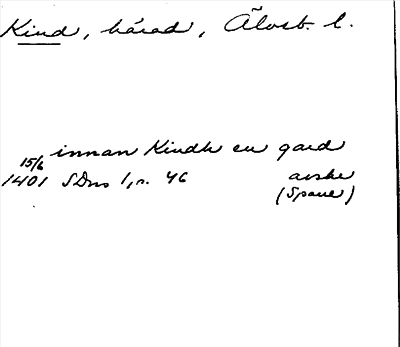 Kind, härad, Älvsb. l.
innan Kindh en gard
15/6
1401 SDns 1, n. 46 avskr
(Spane)